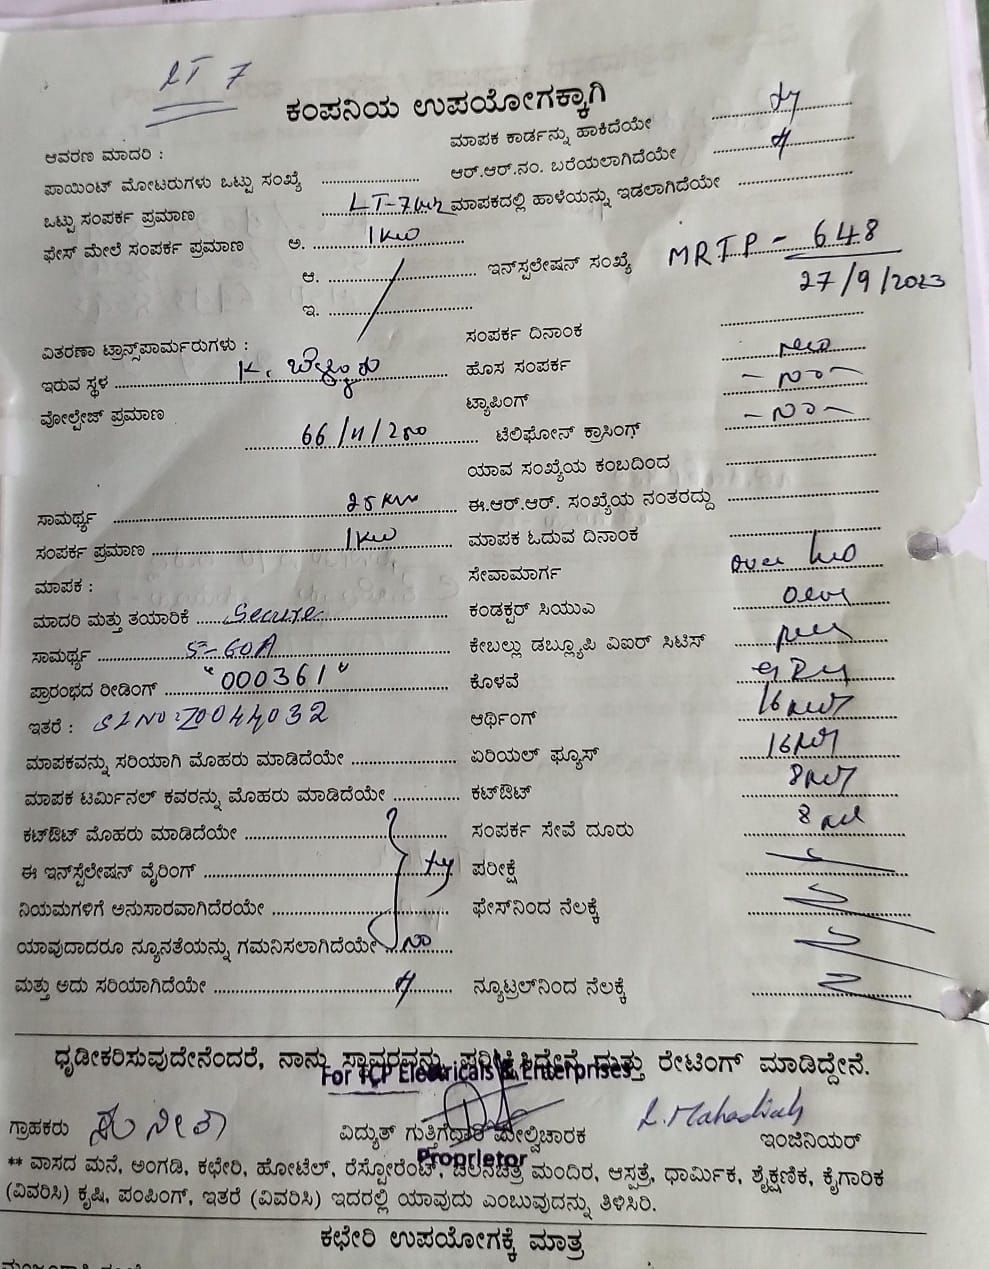 LT 7
ಕಂಪನಿಯ ಉಪಯೋಗಕ್ಕಾಗಿ
ಆವರಣ ಮಾದರಿ :
ಮಾಪಕ ಕಾರ್ಡನ್ನು ಹಾಕಿದೆಯೇ
ಪಾಯಿಂಟ್ ಮೋಟರುಗಳು ಒಟ್ಟು ಸಂಖ್ಯೆ
ಆರ್.ಆರ್.ನಂ. ಬರೆಯಲಾಗಿದೆಯೇ
ಒಟ್ಟು ಸಂಪರ್ಕ ಪ್ರಮಾಣ LT-7
ಮಾಪಕದಲ್ಲಿ ಹಾಳೆಯನ್ನು ಇಡಲಾಗಿದೆಯೇ
ಫೇಸ್ ಮೇಲೆ ಸಂಪರ್ಕ ಪ್ರಮಾಣ ಅ. 1kw
ಆ.
ಇನ್‌ಸ್ಟಲೇಷನ್ ಸಂಖ್ಯೆ MRTP - 648
27/9/2023
ಇ.
ವಿತರಣಾ ಟ್ರಾನ್ಸ್‌ಪಾರ್ಮರುಗಳು :
ಸಂಪರ್ಕ ದಿನಾಂಕ
ಇರುವ ಸ್ಥಳ K. ಬೆಳ್ಳೂರು
ಹೊಸ ಸಂಪರ್ಕ
ವೋಲ್ಟೇಜ್ ಪ್ರಮಾಣ
ಟ್ಯಾಪಿಂಗ್ - No -
66/11/250
ಟೆಲಿಫೋನ್ ಕ್ರಾಸಿಂಗ್ - No -
ಯಾವ ಸಂಖ್ಯೆಯ ಕಂಬದಿಂದ
ಸಾಮರ್ಥ್ಯ 25 KW
ಈ.ಆರ್.ಆರ್. ಸಂಖ್ಯೆಯ ನಂತರದ್ದು
ಸಂಪರ್ಕ ಪ್ರಮಾಣ 1kw
ಮಾಪಕ ಓದುವ ದಿನಾಂಕ
ಮಾಪಕ :
ಸೇವಾಮಾರ್ಗ
ಮಾದರಿ ಮತ್ತು ತಯಾರಿಕೆ Secure
ಕಂಡಕ್ಟರ್ ಸಿಯುಎ
ಸಾಮರ್ಥ್ಯ 5-60A
ಕೇಬಲ್ಲು ಡಬ್ಲ್ಯೂಪಿ ವಿಐಆರ್ ಸಿಟಿಸ್
ಪ್ರಾರಂಭದ ರೀಡಿಂಗ್ "000361"
ಕೊಳವೆ
ಇತರೆ : SLNO: Z0044032
ಆರ್ಥಿಂಗ್
ಮಾಪಕವನ್ನು ಸರಿಯಾಗಿ ಮೊಹರು ಮಾಡಿದೆಯೇ
ಏರಿಯಲ್ ಫ್ಯೂಸ್
ಮಾಪಕ ಟರ್ಮಿನಲ್ ಕವರನ್ನು ಮೊಹರು ಮಾಡಿದೆಯೇ
ಕಟ್‌ಔಟ್
ಕಟ್‌ಔಟ್ ಮೊಹರು ಮಾಡಿದೆಯೇ
ಸಂಪರ್ಕ ಸೇವೆ ದೂರು
ಈ ಇನ್‌ಸ್ಟೆಲೇಷನ್ ವೈರಿಂಗ್
ಪರೀಕ್ಷೆ
ನಿಯಮಗಳಿಗೆ ಅನುಸಾರವಾಗಿದೆರಯೇ
ಫೇಸ್‌ನಿಂದ ನೆಲಕ್ಕೆ
ಯಾವುದಾದರೂ ನ್ಯೂನತೆಯನ್ನು ಗಮನಿಸಲಾಗಿದೆಯೇ No
ಮತ್ತು ಅದು ಸರಿಯಾಗಿದೆಯೇ
ನ್ಯೂಟ್ರಲ್‌ನಿಂದ ನೆಲಕ್ಕೆ
ಧೃಡೀಕರಿಸುವುದೇನೆಂದರೆ, ನಾನು ಸ್ಥಾವರವನ್ನು ಪರಿಶೀಕ್ಷಿಸಿದ್ದೇನೆ ಮತ್ತು ರೇಟಿಂಗ್ ಮಾಡಿದ್ದೇನೆ.
For TCP Electricals & Enterprises
ಗ್ರಾಹಕರು ಸುನೀತಾ
ವಿದ್ಯುತ್ ಗುತ್ತಿಗೆದಾರ ಮೇಲ್ವಿಚಾರಕ
L. Mahadiah
ಇಂಜಿನಿಯರ್
Proprietor
** ವಾಸದ ಮನೆ, ಅಂಗಡಿ, ಕಛೇರಿ, ಹೋಟೆಲ್, ರೆಸ್ಟೋರೆಂಟ್, ಚಲನಚಿತ್ರ ಮಂದಿರ, ಆಸ್ಪತ್ರೆ, ಧಾರ್ಮಿಕ, ಶೈಕ್ಷಣಿಕ, ಕೈಗಾರಿಕ
(ವಿವರಿಸಿ) ಕೃಷಿ, ಪಂಪಿಂಗ್, ಇತರೆ (ವಿವರಿಸಿ) ಇದರಲ್ಲಿ ಯಾವುದು ಎಂಬುವುದನ್ನು ತಿಳಿಸಿರಿ.
ಕಛೇರಿ ಉಪಯೋಗಕ್ಕೆ ಮಾತ್ರ